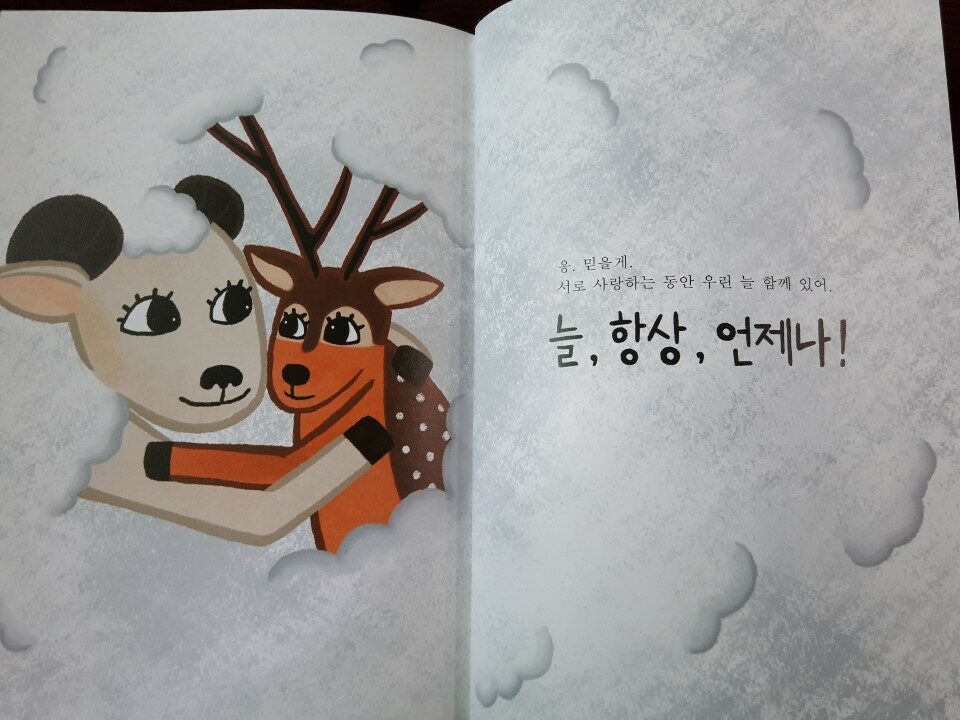 응. 믿을게.
서로 사랑하는 동안 우린 늘 함께 있어.
늘, 항상, 언제나!